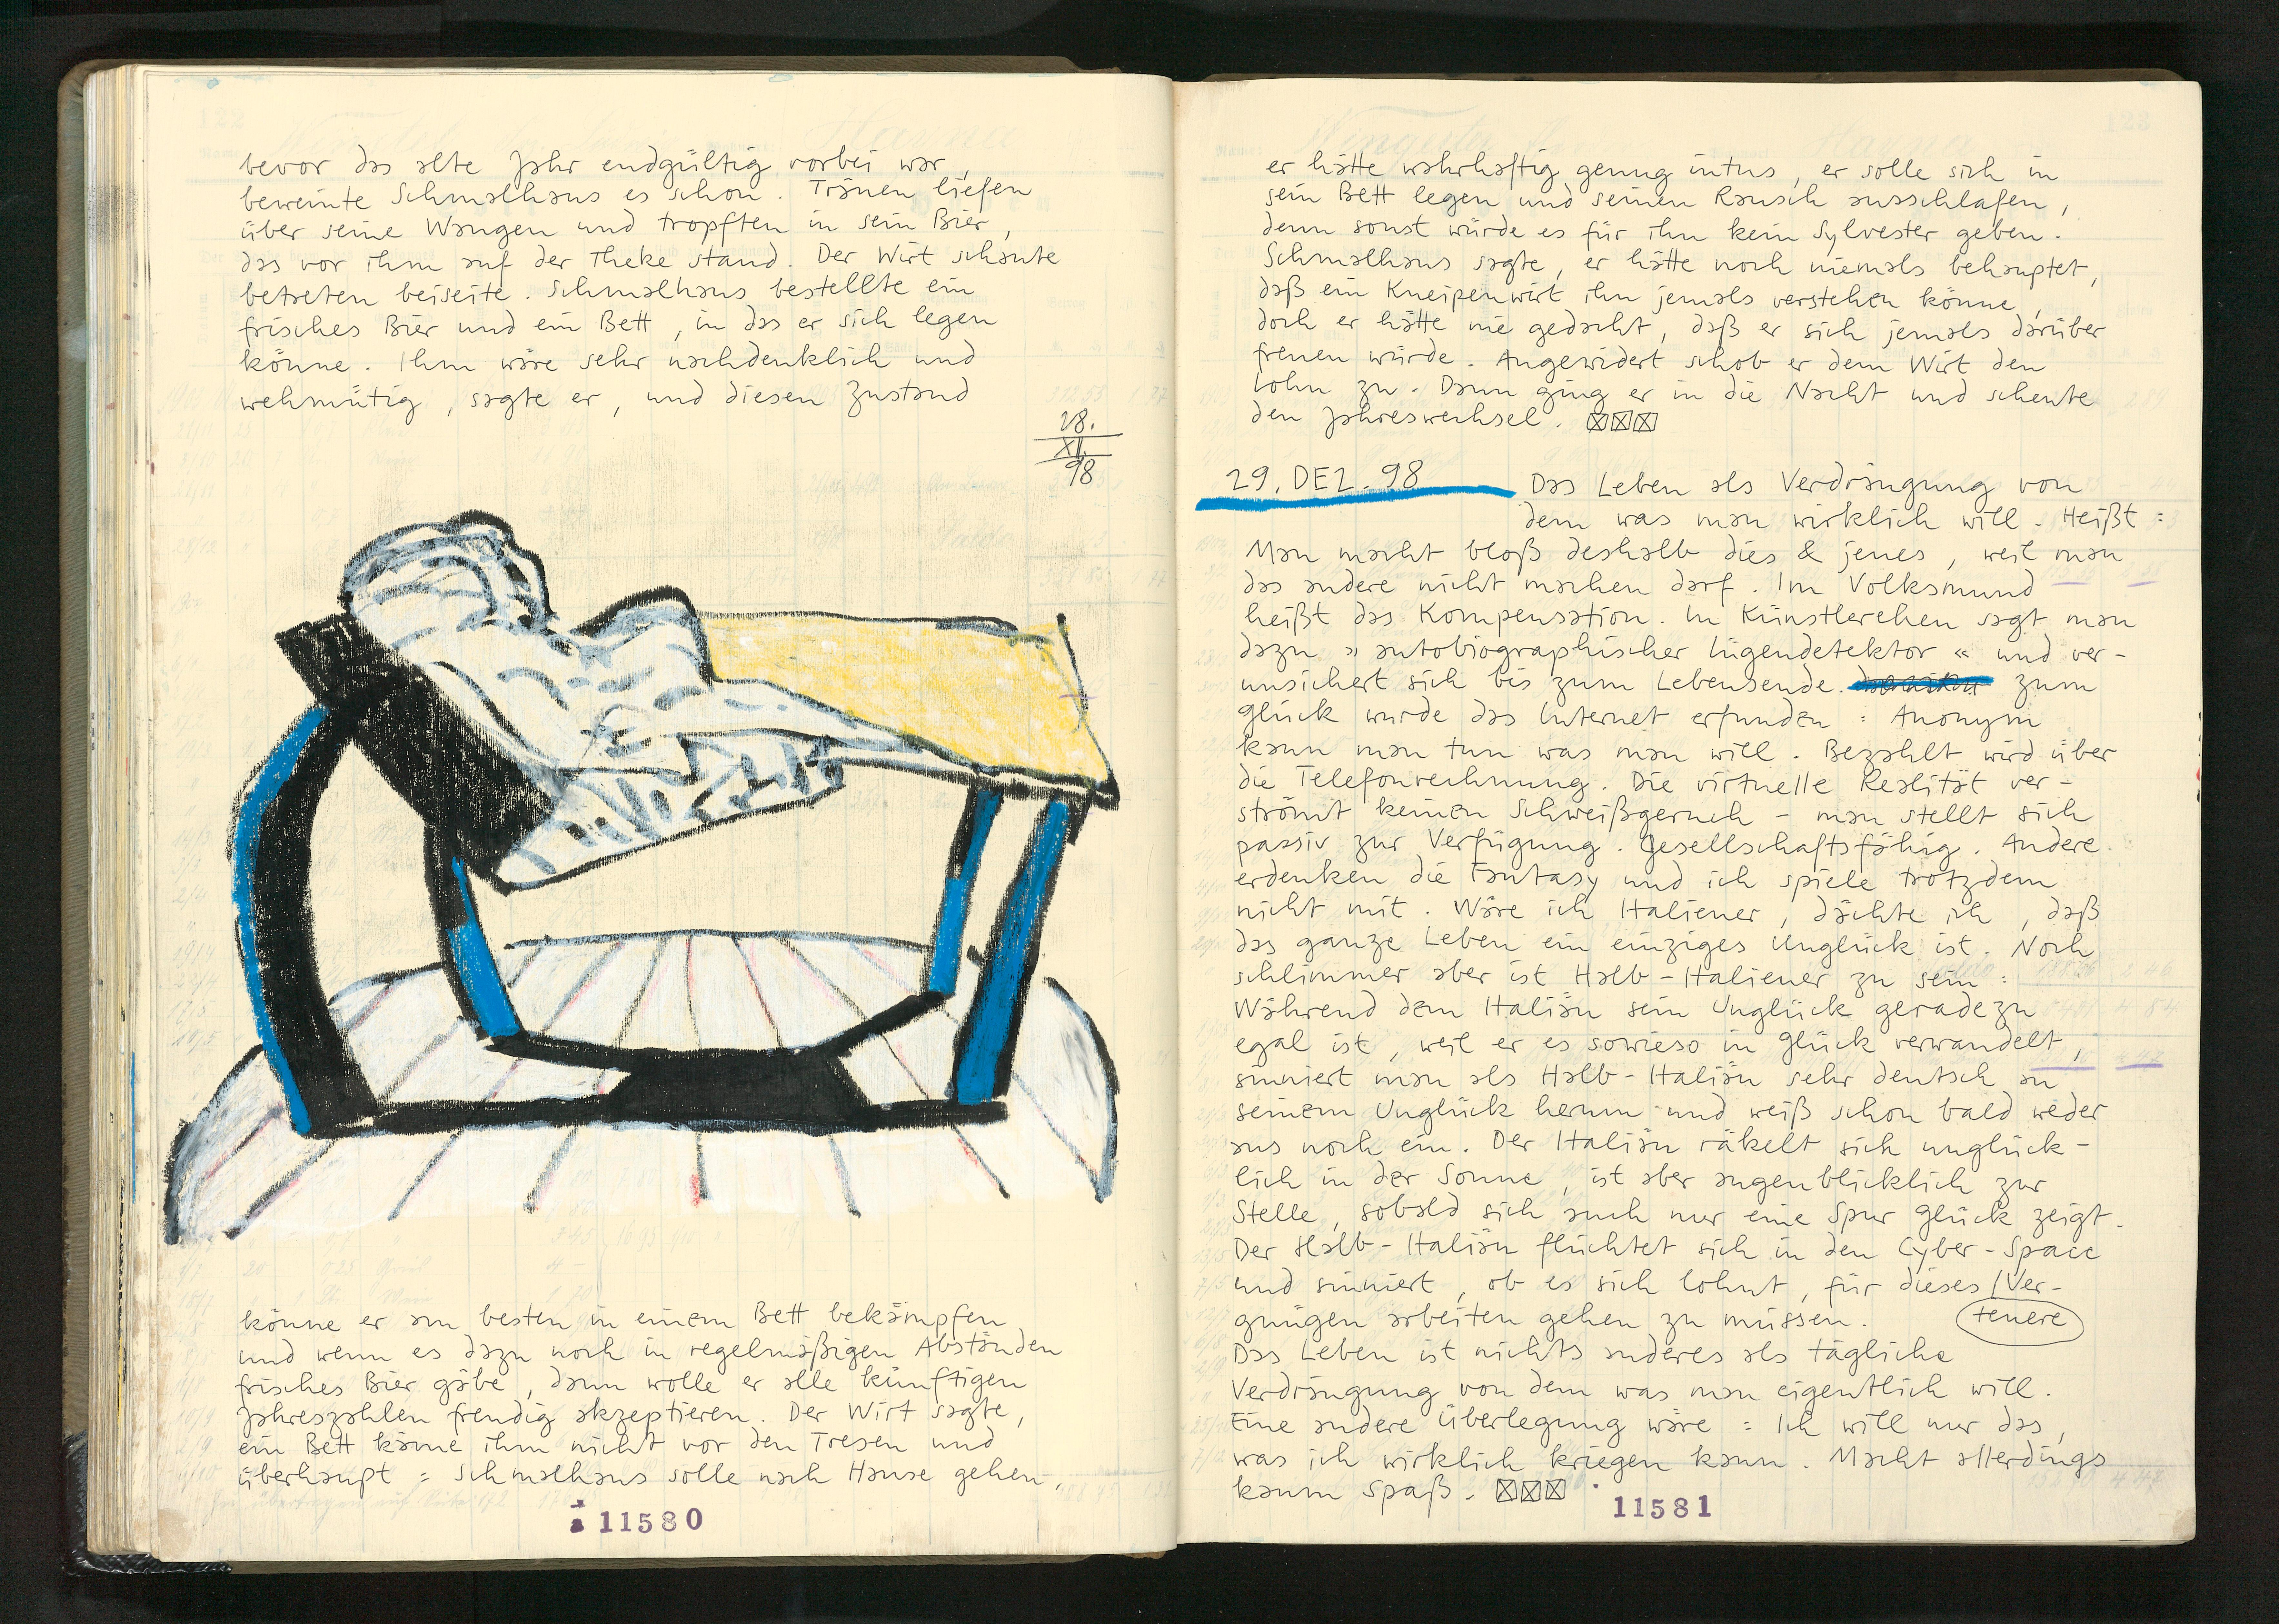 bevor das alte Jahr endgültig vorbei war,
beweinte Schmalhaus es schon. Tränen liefen
über seine Wangen und tropften in sein Bier,
das vor ihm auf der Theke stand. Der Wirt schaute
betreten beiseite. Schmalhaus bestellte ein
frisches Bier und ein Bett, in das er sich legen
könne. Ihm wäre sehr nachdenklich und
wehmütig, sagte er, und diesen Zustand
28.
XII.
98
könne er am besten in einem Bett bekämpfen
und wenn es dazu noch in regelmäßigen Abständen
frisches Bier gäbe, dann wolle er alle künftigen
Jahreszahlen freudig akzeptieren. Der Wirt sagte,
ein Bett käme ihm nicht vor den Tresen und
überhaupt: Schmalhaus solle nach Hause gehen,
11580
er hätte wahrhaftig genug intus, er solle sich in
sein Bett legen und seinen Rausch ausschlafen,
denn sonst würde es für ihn kein Sylvester geben.
Schmalhaus sagte, er hätte noch niemals behauptet,
daß ein Kneipenwirt ihn jemals verstehen könne,
doch er hätte nie gedacht, daß er sich jemals darüber
freuen würde. Angewidert schob er dem Wirt den
Lohn zu. Dann ging er in die Nacht und scheute
den Jahreswechsel.
29. DEZ. 98 Das Leben als Verdrängung von
dem was man wirklich will. Heißt:
Man macht bloß deshalb dies & jenes, weil man
das andere nicht machen darf. Im Volksmund
heißt das Kompensation. In Künstlerehen sagt man
dazu »autobiographischer Lügendetektor« und ver-
unsichert sich bis zum Lebensende. zum
Glück wurde das Internet erfunden: Anonym
kann man tun was man will. Bezahlt wird über
die Telefonrechnung. Die virtuelle Realität ver-
strömt keinen Schweißgeruch - man stellt sich
passiv zur Verfügung. Gesellschaftsfähig. Andere
erdenken die Fantasy und ich spiele trotzdem
nicht mit. Wäre ich Italiener, dächte ich, daß
das ganze Leben ein einziges Unglück ist. Noch
schlimmer aber ist Halb-Italiener zu sein:
Während dem Italiän sein Unglück geradezu
egal ist, weil er es sowieso in Glück verwandelt,
sinniert man als Halb-Italiän sehr deutsch an
seinem Unglück herum und weiß schon bald weder
aus noch ein. Der Italiän räkelt sich unglück-
lich in der Sonne, ist aber augenblicklich zur
Stelle, sobald sich auch nur eine Spur Glück zeigt.
Der Halb-Italiän flüchtet sich in den Cyber-Space
und sinniert, ob es sich lohnt, für dieses / Ver-
gnügen arbeiten gehen zu müssen. teuere
Das Leben ist nichts anderes als tägliche
Verdrängung von dem was man eigentlich will.
Eine andere Überlegung wäre: Ich will nur das,
was ich wirklich kriegen kann. Macht allerdings
kaum Spaß.
11581